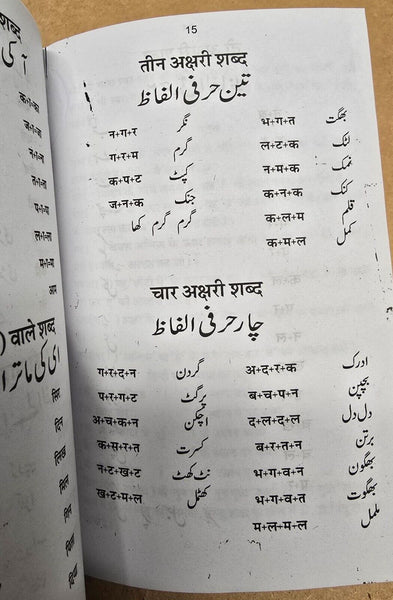 15
तीन अक्षरी शब्द
تین حرفی الفاظ
न+ग+र نگر भ+ग+त بھگت
ग+र+म گرم ल+ट+क لٹک
क+प+ट کپٹ न+म+क نمک
ज+न+क جنک क+न+क کنک
گرم گرم کھا क+ल+म قلم
क+म+ल کمل
चार अक्षरी शब्द
چار حرفی الفاظ
ग+र+द+न گردن अ+द+र+क ادرک
प+र+ग+ट پرگٹ ब+च+प+न بچپن
अ+च+क+न اچکن द+ल+द+ल دل دل
क+स+र+त کسرت ब+र+त+न برتن
न+ट+ख+ट نٹ کھٹ भ+ग+व+न بھگون
ख+ट+म+ल کھٹمل भ+ग+व+त بھگوت
म+ल+म+ल ململ
शब्द
वाले शब्द
ای کی ماترا
सिल
दिन
लिख
मिल